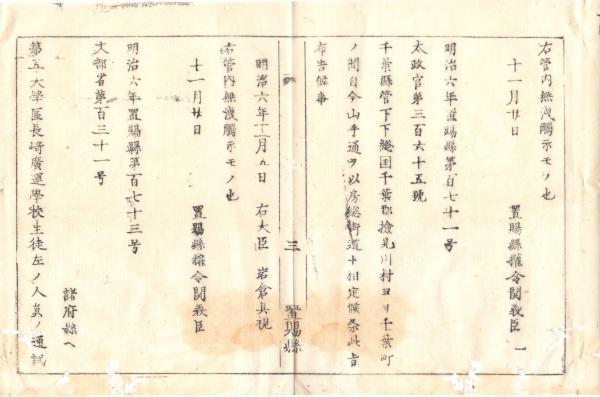 右管内無洩觸示モノ也
十一月廿日
置賜縣權令関義臣
明治六年置賜縣第百七十一号
太政官第三百六十五號
千葉縣管下下総国千葉郡検見川村ヨリ千葉町
ノ間自今山手通ヲ以房総街道ト相定候条此旨
布告候事
三
置賜縣
明治六年十一月九日
右大臣
岩倉具視
右管内無洩觸示モノ也
十一月廿日
置賜縣權令関義臣
明治六年置賜縣第百七十三号
文部省第百三十一号
諸府縣ヘ
第五大學區長崎廣運學校生徒左ノ人員ノ通試